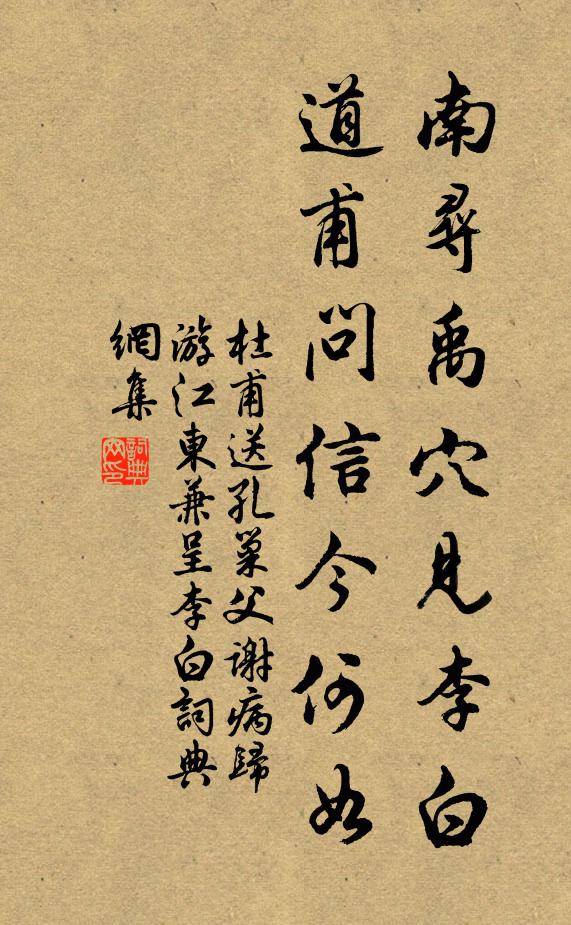 南尋禹穴見李白
道甫問信今何如
杜甫送孔巢父謝病歸
游江東兼呈李白詞典
網集
詞典
网印